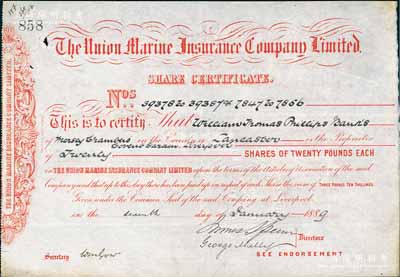 858
The Union Marine Insurance Company Limited.
SHARE CERTIFICATE.
Nos 39378 to 39387 & 7847 to 7856
This is to certify That William Thomas Phillips Banks
of Mersey Chambers in the County of Lancaster is the Proprietor
of Covent Garden Liverpool
Twenty SHARES OF TWENTY POUNDS EACH
in THE UNION MARINE INSURANCE COMPANY LIMITED upon the terms of the Articles of Association of the said
Company and that up to this day there has been paid up in respect of each Share the sum of THREE POUNDS TEN SHILLINGS.
Given under the Common Seal of the said Company at Liverpool
in the day of January 1889
Directors
George
Secretary
SEE ENDORSEMENT
THE UNION MARINE INSURANCE COMPANY LIMITED